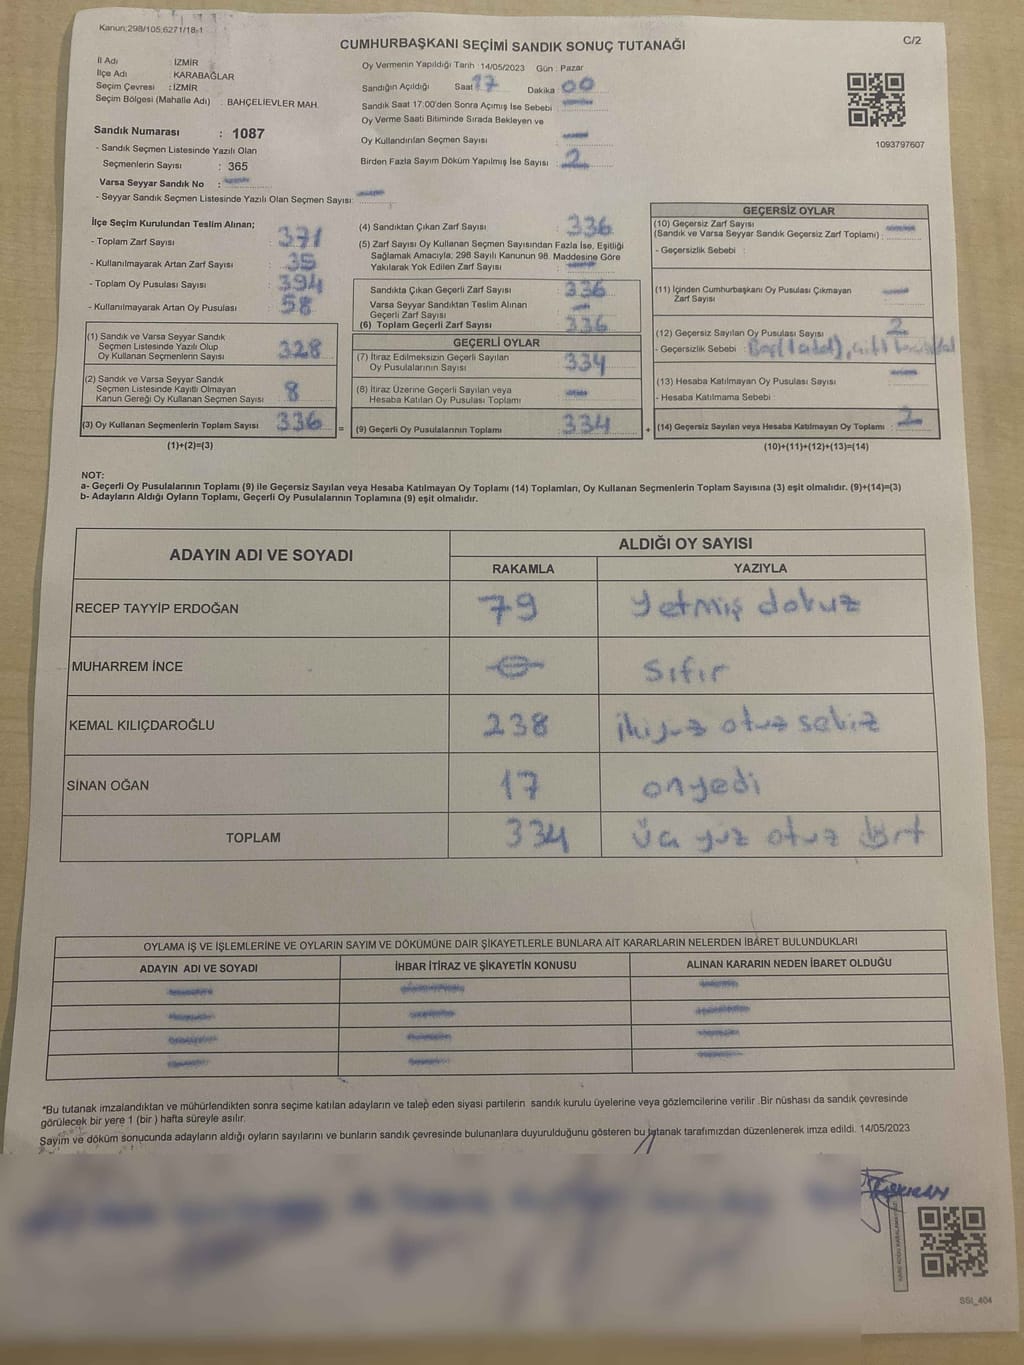 Kanun;298/105;6271/18-1
CUMHURBAŞKANI SEÇİMİ SANDIK SONUÇ TUTANAĞI
C/2
İl Adı : İZMİR
İlçe Adı : KARABAĞLAR
Seçim Çevresi : İZMİR
Seçim Bölgesi (Mahalle Adı) : BAHÇELİEVLER MAH.
Sandık Numarası : 1087
- Sandık Seçmen Listesinde Yazılı Olan
Seçmenlerin Sayısı : 365
Varsa Seyyar Sandık No :
- Seyyar Sandık Seçmen Listesinde Yazılı Olan Seçmen Sayısı:
Oy Vermenin Yapıldığı Tarih : 14/05/2023 Gün : Pazar
Sandığın Açıldığı Saat : 17 Dakika : 00
Sandık Saat 17:00'den Sonra Açımış İse Sebebi :
Oy Verme Saati Bitiminde Sırada Bekleyen ve
Oy Kullandırılan Seçmen Sayısı :
Birden Fazla Sayım Döküm Yapılmış İse Sayısı : 2
1093797607
İlçe Seçim Kurulundan Teslim Alınan;
- Toplam Zarf Sayısı : 371
- Kullanılmayarak Artan Zarf Sayısı : 35
- Toplam Oy Pusulası Sayısı : 394
- Kullanılmayarak Artan Oy Pusulası : 58
(1) Sandık ve Varsa Seyyar Sandık
Seçmen Listesinde Yazılı Olup
Oy Kullanan Seçmenlerin Sayısı : 328
(2) Sandık ve Varsa Seyyar Sandık
Seçmen Listesinde Kayıtlı Olmayan
Kanun Gereği Oy Kullanan Seçmen Sayısı : 8
(3) Oy Kullanan Seçmenlerin Toplam Sayısı : 336
(1)+(2)=(3)
(4) Sandıktan Çıkan Zarf Sayısı : 336
(5) Zarf Sayısı Oy Kullanan Seçmen Sayısından Fazla İse, Eşitliği
Sağlamak Amacıyla, 298 Sayılı Kanunun 98. Maddesine Göre
Yakılarak Yok Edilen Zarf Sayısı :
Sandıkta Çıkan Geçerli Zarf Sayısı : 336
Varsa Seyyar Sandıktan Teslim Alınan
Geçerli Zarf Sayısı :
(6) Toplam Geçerli Zarf Sayısı : 336
GEÇERLİ OYLAR
(7) İtiraz Edilmeksizin Geçerli Sayılan
Oy Pusulalarının Sayısı : 334
(8) İtiraz Üzerine Geçerli Sayılan veya
Hesaba Katılan Oy Pusulası Toplamı :
= (9) Geçerli Oy Pusulalarının Toplamı : 334
GEÇERSİZ OYLAR
(10) Geçersiz Zarf Sayısı
(Sandık ve Varsa Seyyar Sandık Geçersiz Zarf Toplamı) :
- Geçersizlik Sebebi :
(11) İçinden Cumhurbaşkanı Oy Pusulası Çıkmayan
Zarf Sayısı :
(12) Geçersiz Sayılan Oy Pusulası Sayısı : 2
- Geçersizlik Sebebi : Boş(1 adet),
(13) Hesaba Katılmayan Oy Pusulası Sayısı :
- Hesaba Katılmama Sebebi :
+ (14) Geçersiz Sayılan veya Hesaba Katılmayan Oy Toplamı : 2
(10)+(11)+(12)+(13)=(14)
NOT:
a- Geçerli Oy Pusulalarının Toplamı (9) ile Geçersiz Sayılan veya Hesaba Katılmayan Oy Toplamı (14) Toplamları, Oy Kullanan Seçmenlerin Toplam Sayısına (3) eşit olmalıdır. (9)+(14)=(3)
b- Adayların Aldığı Oyların Toplamı, Geçerli Oy Pusulalarının Toplamına (9) eşit olmalıdır.
ADAYIN ADI VE SOYADI
ALDIĞI OY SAYISI
RAKAMLA YAZIYLA
RECEP TAYYİP ERDOĞAN 79 yetmiş dokuz
MUHARREM İNCE 0 sıfır
KEMAL KILIÇDAROĞLU 238 ikiyüz otuz sekiz
SİNAN OĞAN 17 onyedi
TOPLAM 334 üç yüz otuz dört
OYLAMA İŞ VE İŞLEMLERİNE VE OYLARIN SAYIM VE DÖKÜMÜNE DAİR ŞİKAYETLERLE BUNLARA AİT KARARLARIN NELERDEN İBARET BULUNDUKLARI
ADAYIN ADI VE SOYADI İHBAR İTİRAZ VE ŞİKAYETİN KONUSU ALINAN KARARIN NEDEN İBARET OLDUĞU
*Bu tutanak imzalandıktan ve mühürlendikten sonra seçime katılan adayların ve talep eden siyasi partilerin sandık kurulu üyelerine veya gözlemcilerine verilir .Bir nüshası da sandık çevresinde
görülecek bir yere 1 (bir ) hafta süreyle asılır.
Sayım ve döküm sonucunda adayların aldığı oyların sayılarını ve bunların sandık çevresinde bulunanlara duyurulduğunu gösteren bu tutanak tarafımızdan düzenlenerek imza edildi. 14/05/2023
SSI_404